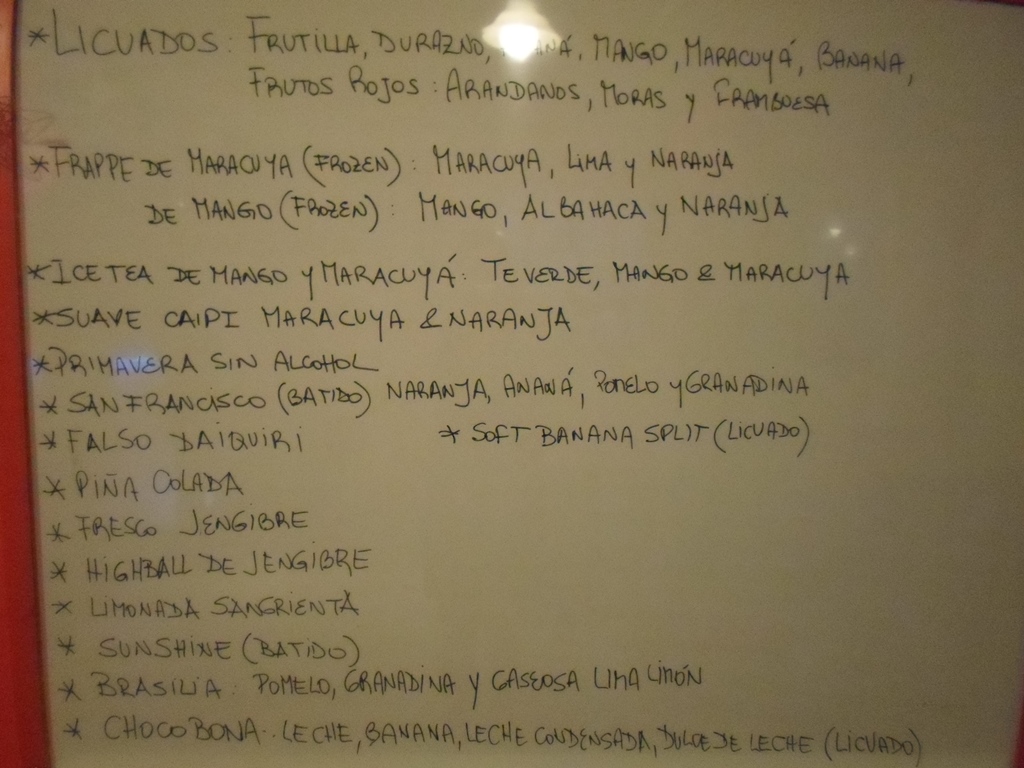 *LICUADOS: FRUTILLA, DURAZNO, MANGO, MARACUYÁ, BANANA,
FRUTOS ROJOS: ARANDANOS, MORAS Y FRAMBUESA
*FRAPPE DE MARACUYA (FROZEN): MARACUYA, LIMA Y NARANJA
DE MANGO (FROZEN): MANGO, ALBAHACA Y NARANJA
*ICE TEA DE MANGO Y MARACUYÁ: TE VERDE, MANGO & MARACUYA
*SUAVE CAIPI MARACUYA & NARANJA
*PRIMAVERA SIN ALCOHOL
* SAN FRANCISCO (BATIDO) NARANJA, ANANÁ, POMELO Y GRANADINA
* FALSO DAIQUIRI * SOFT BANANA SPLIT (LICUADO)
* PIÑA COLADA
* FRESCO JENGIBRE
* HIGHBALL DE JENGIBRE
* LIMONADA SANGRIENTA
* SUNSHINE (BATIDO)
* BRASILIA: POMELO, GRANADINA Y GASEOSA LIMA LIMÓN
* CHOCOBONA: LECHE, BANANA, LECHE CONDENSADA, DULCE DE LECHE (LICUADO)